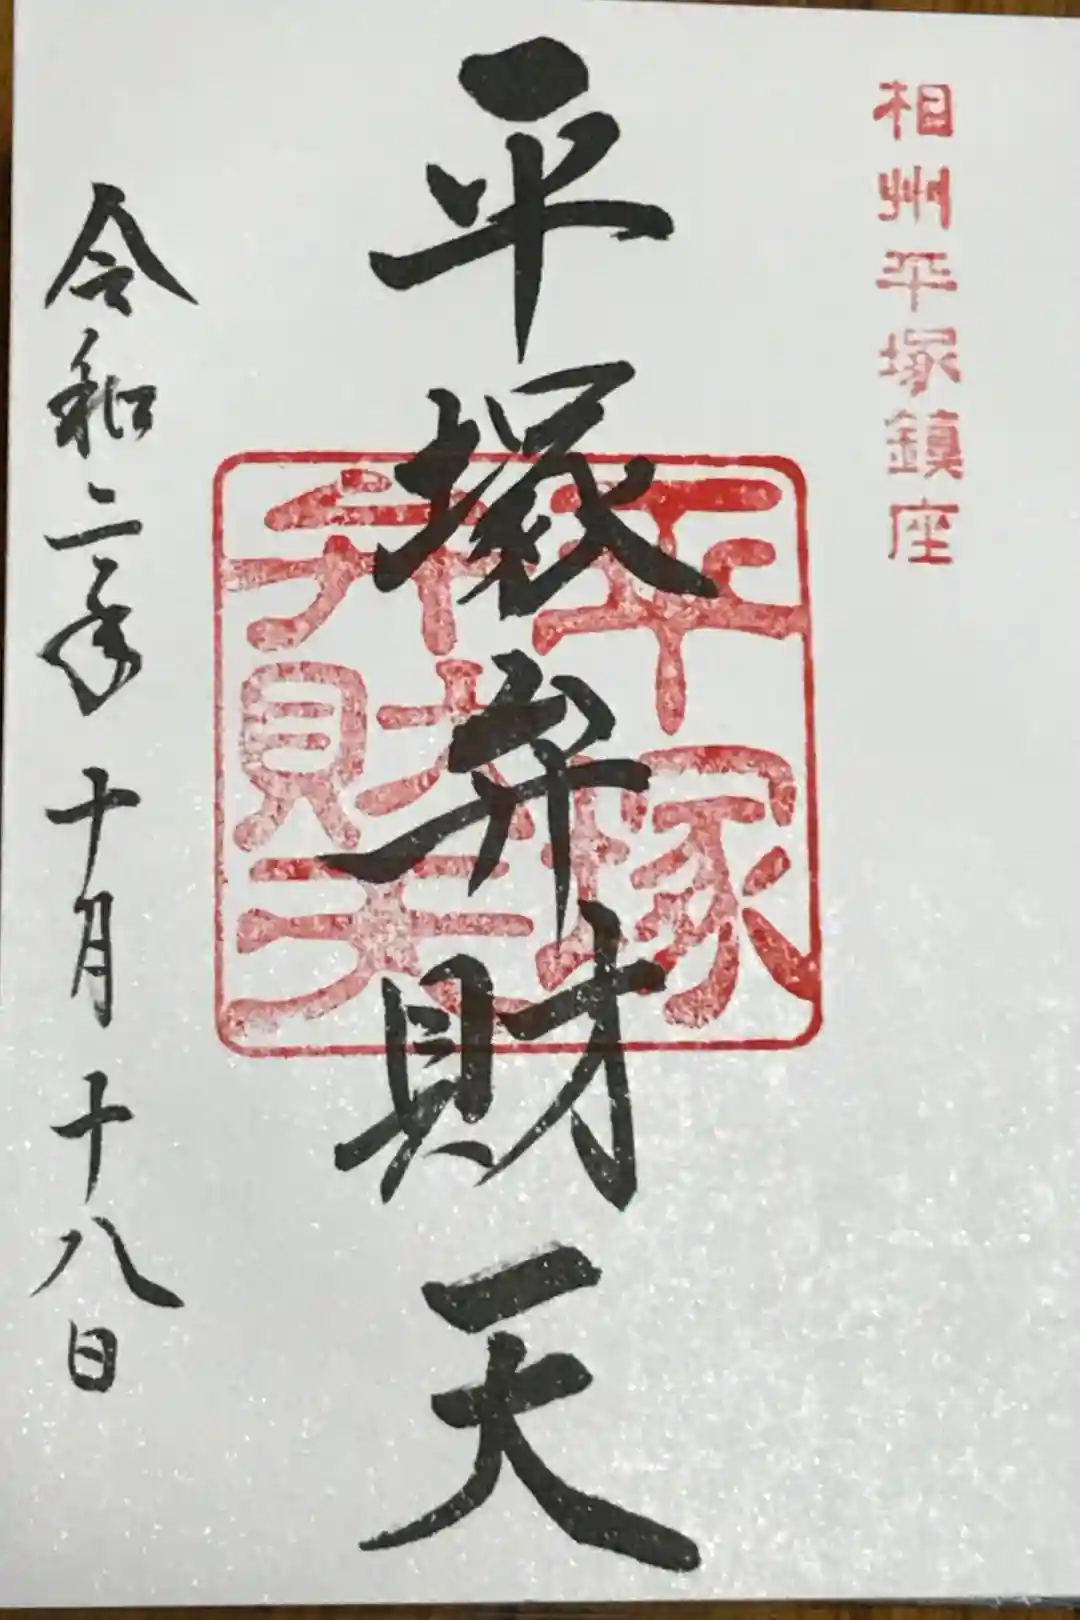 相州平塚鎮座
平塚弁財天
平塚
弁財天
令和二年十月十八日